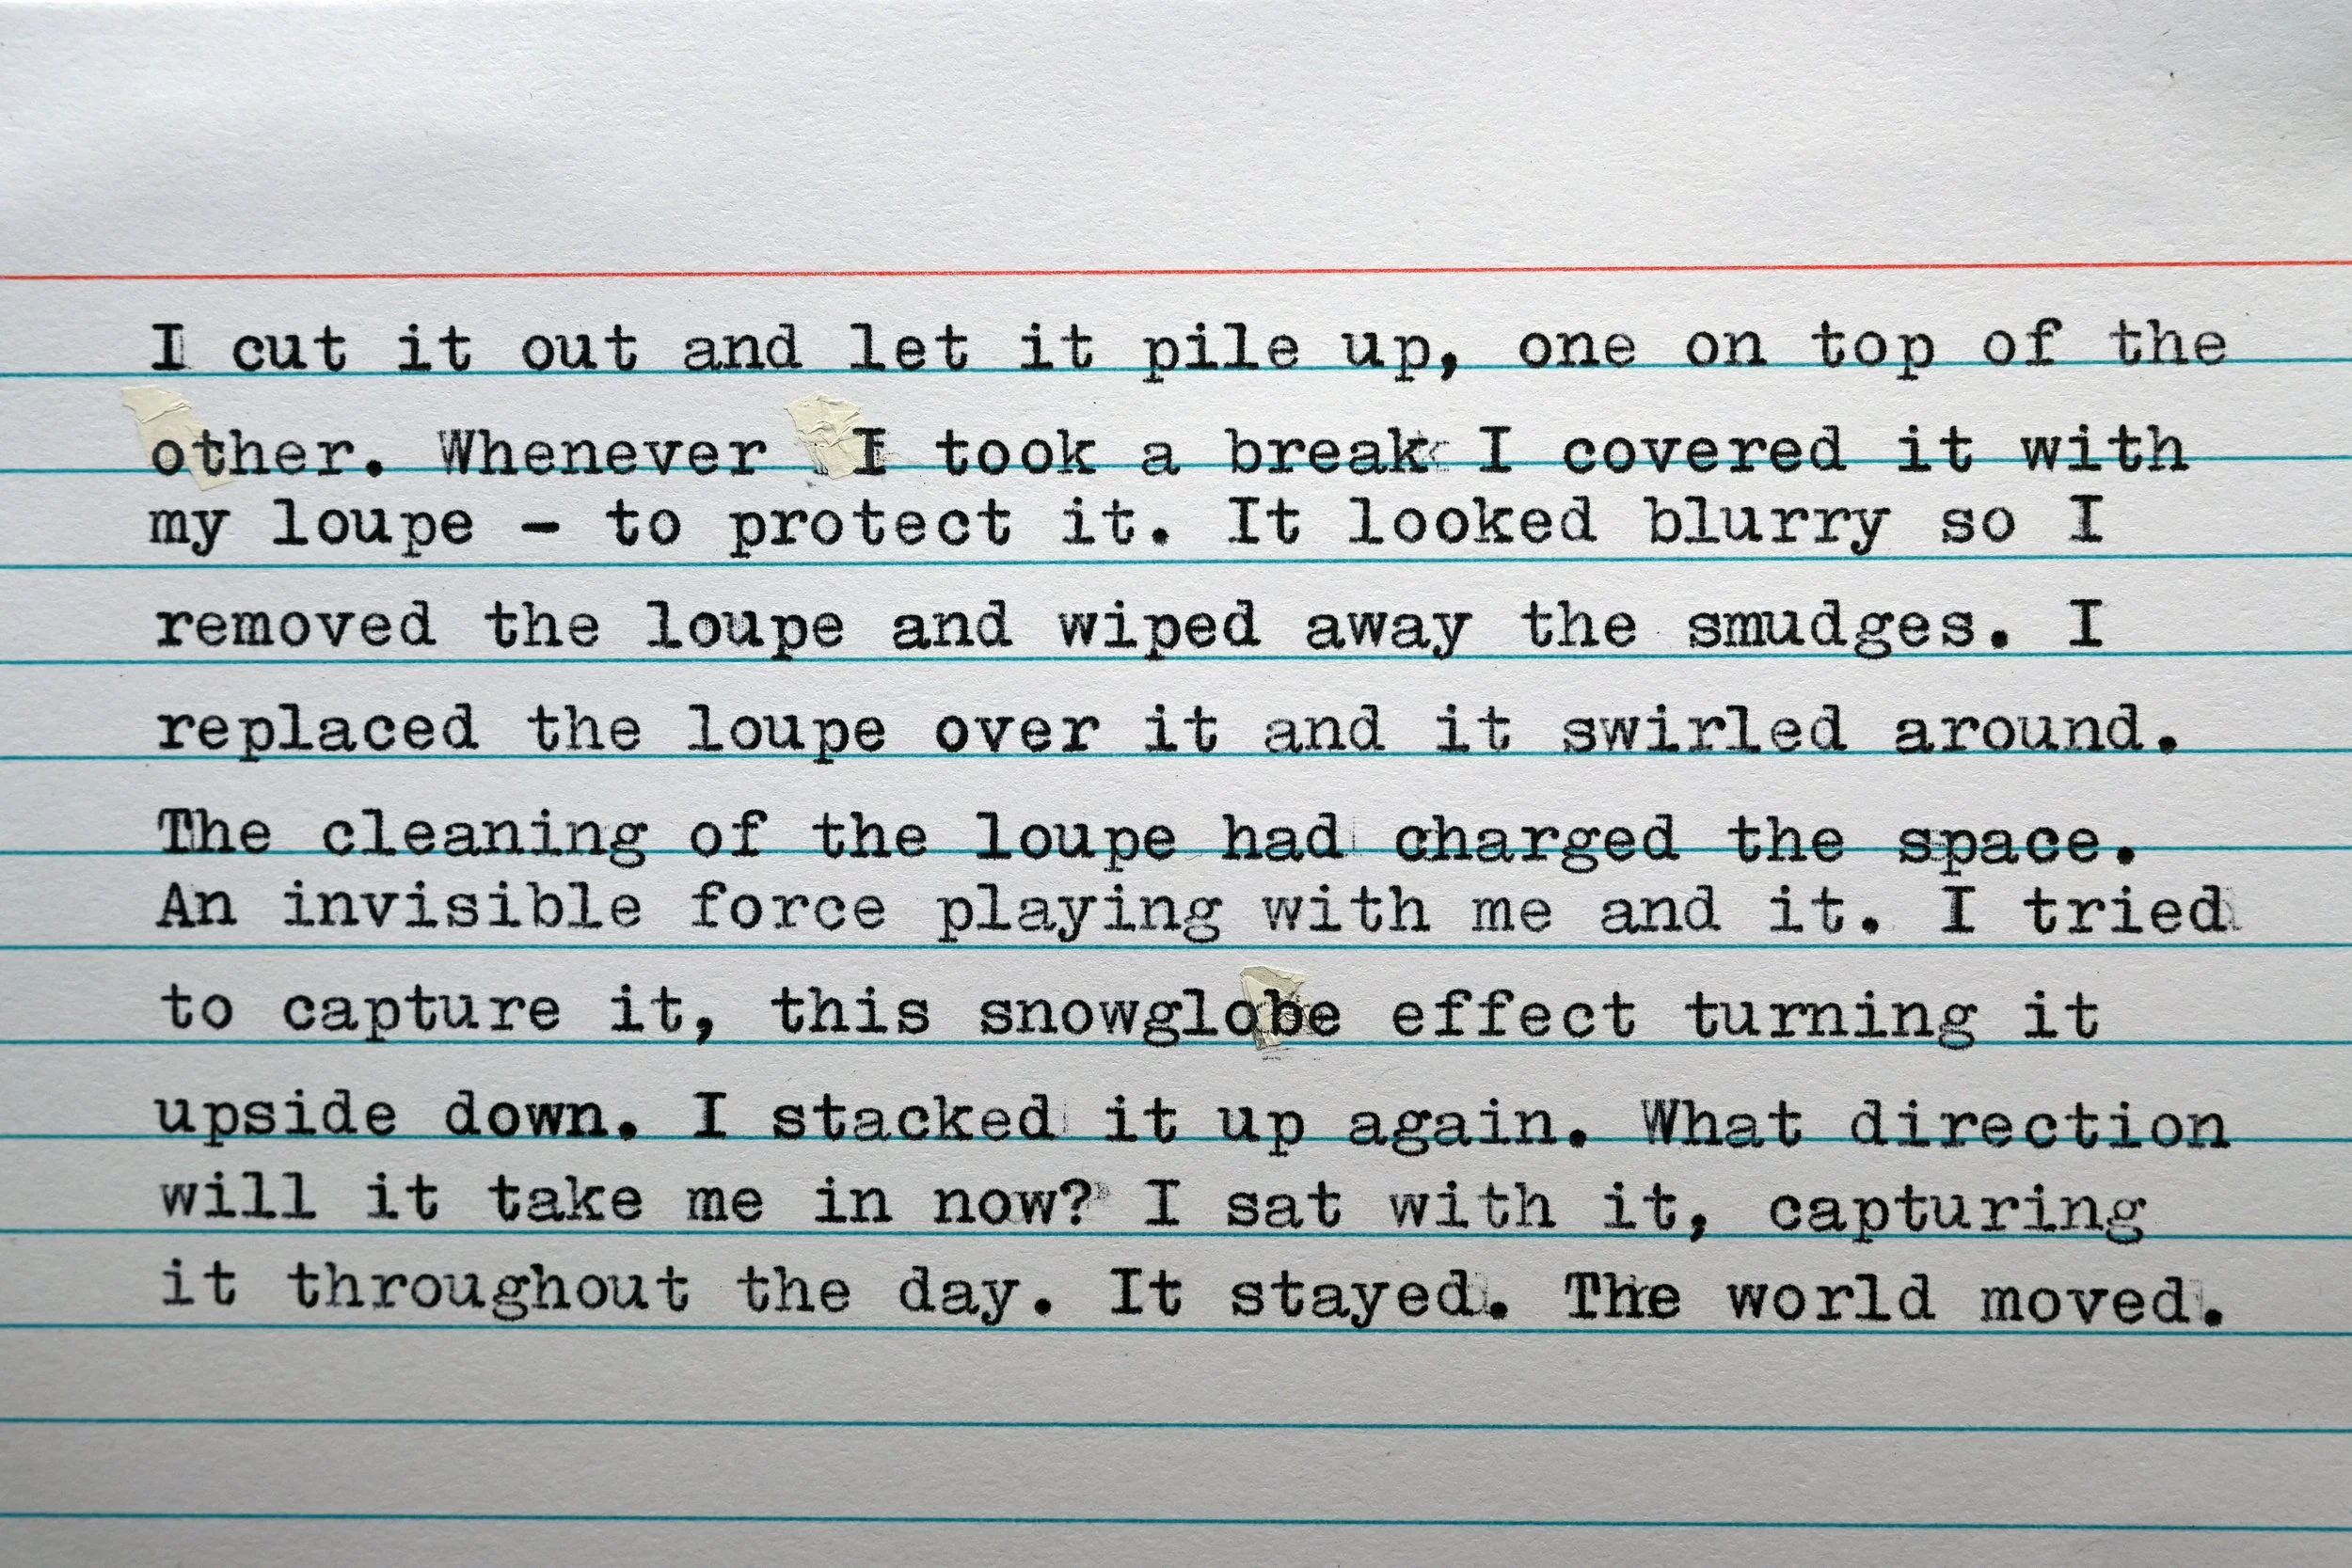 I cut it out and let it pile up, one on top of the
other. Whenever I took a break I covered it with
my loupe - to protect it. It looked blurry so I
removed the loupe and wiped away the smudges. I
replaced the loupe over it and it swirled around.
The cleaning of the loupe had charged the space.
An invisible force playing with me and it. I tried
to capture it, this snowglobe effect turning it
upside down. I stacked it up again. What direction
will it take me in now? I sat with it, capturing
it throughout the day. It stayed. The world moved.